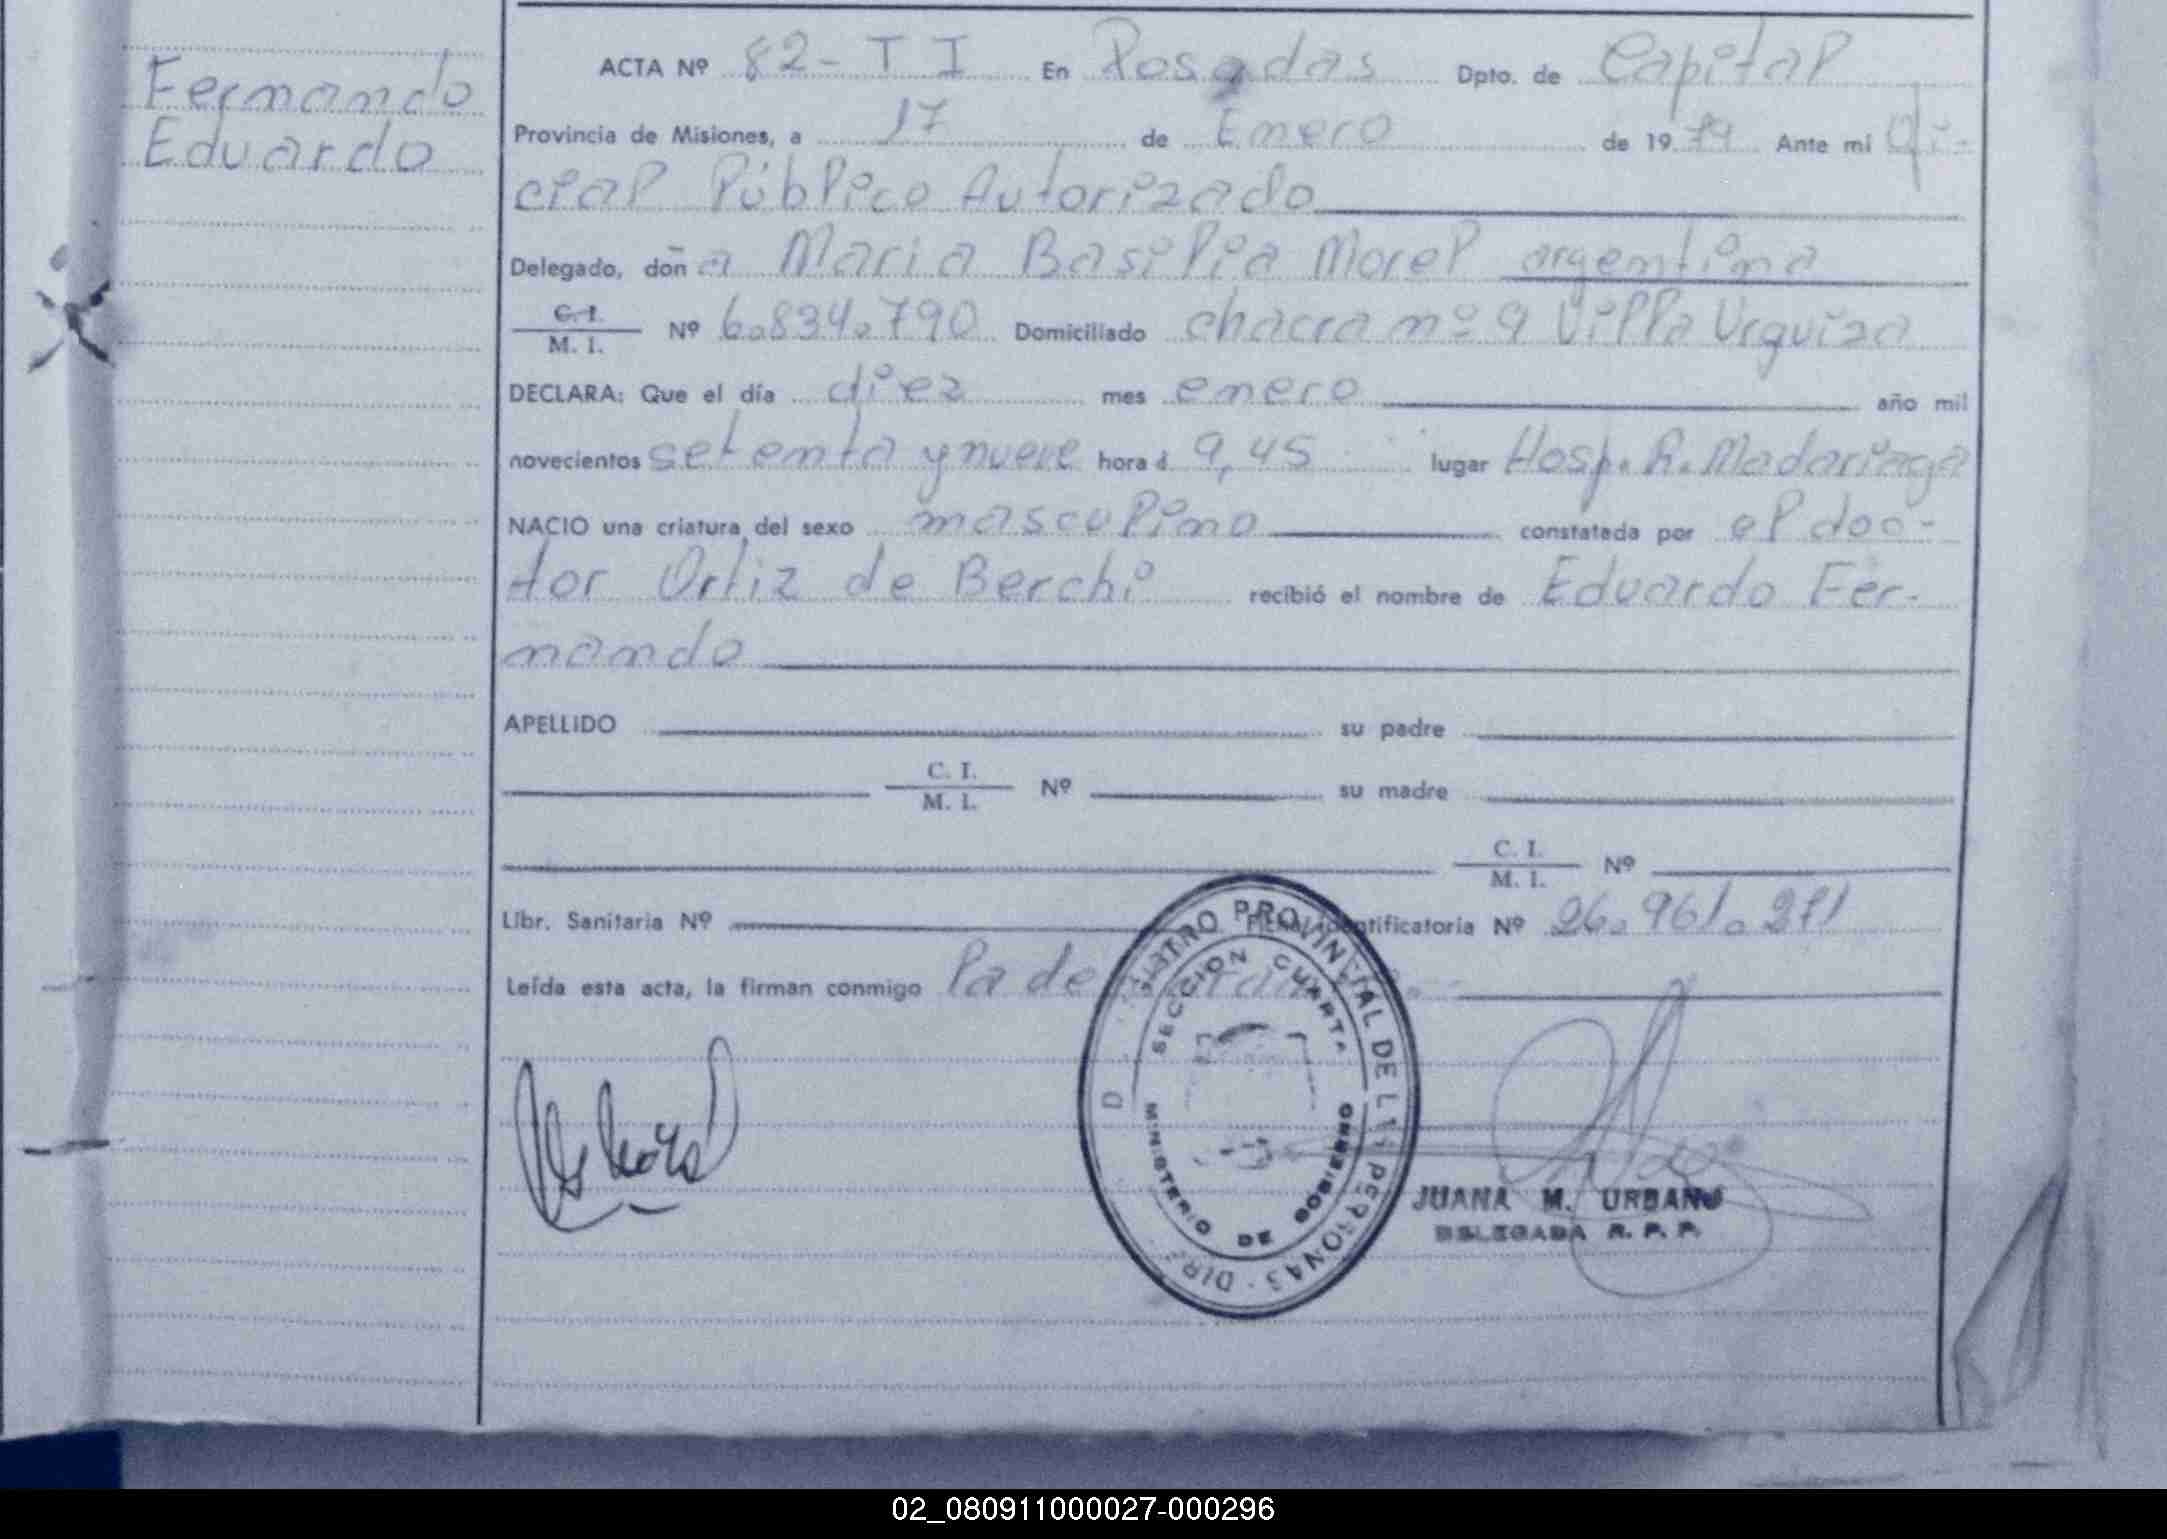 Fernando
Eduardo
ACTA Nº 82-T I En Posadas Dpto. de Capital
Provincia de Misiones, a 17 de Enero de 1979 Ante mi Ofi-
cial Público Autorizado
Delegado, doña Maria Basilia Morel argentina
C. I.
M. I. Nº 6.834.790 Domiciliado chacra nº 9 Villa Urquiza
DECLARA: Que el día diez mes enero año mil
novecientos setenta y nueve hora d 9,45 lugar Hosp. R. Madariaga
NACIO una criatura del sexo masculino constatada por el doc-
tor Ortiz de Berchi recibió el nombre de Eduardo Fer-
nando
APELLIDO su padre
C. I.
M. I. Nº su madre
C. I.
M. I. Nº
Libr. Sanitaria Nº Ficha Identificatoria Nº 26.961.271
Leída esta acta, la firman conmigo la declarante.
PROVINCIAL DE LAS PERSONAS
SECCION CUARTA
MINISTERIO DE GOBIERNO
JUANA M. URBANO
DELEGADA R. P. P.
02_080911000027-000296